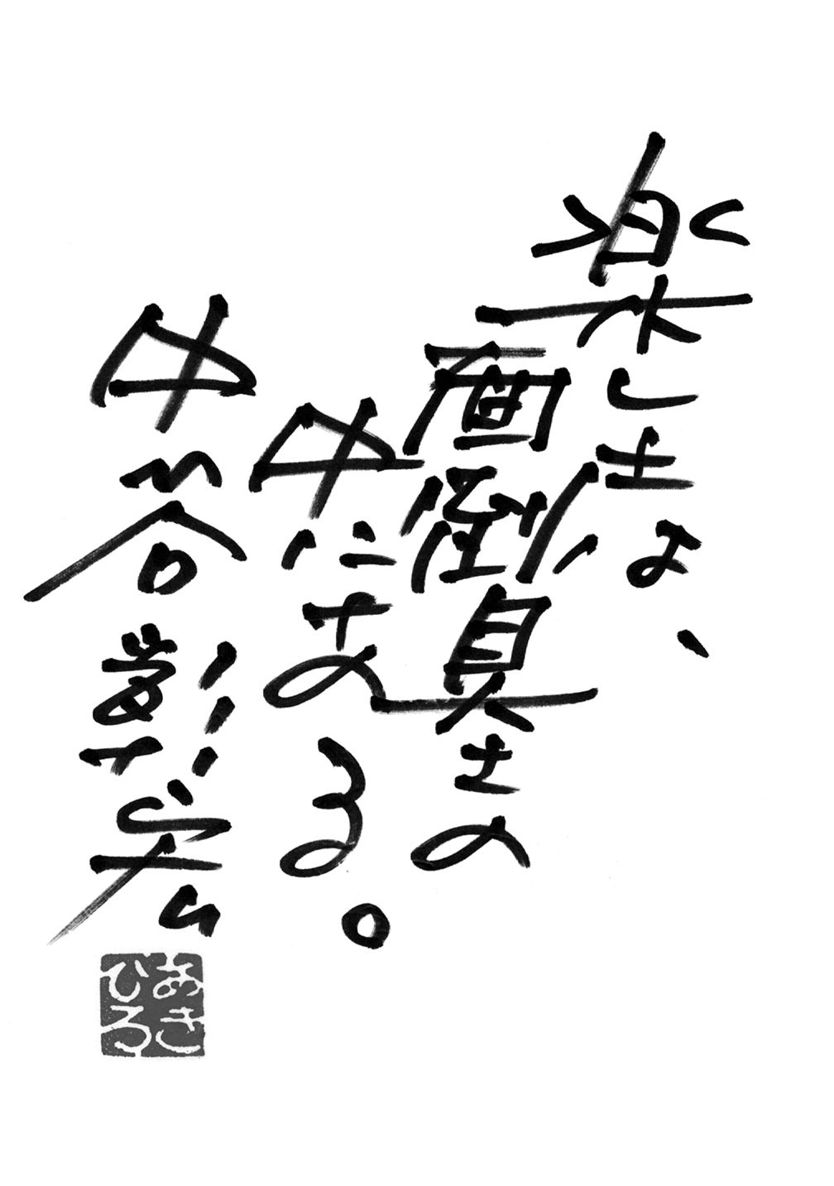 楽しさは、
面倒臭さの
中にある。
中谷彰宏
あき
ひろ